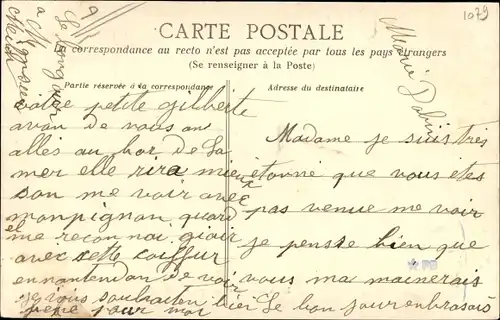 1079
CARTE POSTALE
La correspondance au recto n'est pas acceptée par tous les pays étrangers
(Se renseigner à la Poste)
Partie réservée à la correspondance
Adresse du destinataire
Marie
votre petite gilberte
avan de vous
alles au bor de la
mer elle rira mieux
son me voir avec
monpignon quard
el me reconnoi
avec sette coiffur
en nantendan de voir
je vous souhaiten bien le bon jour enbrasais
pere pour moi
Madame je suis très
etonné que vous etes
pas venue me voir
je pense bien que
vous ma mainerais